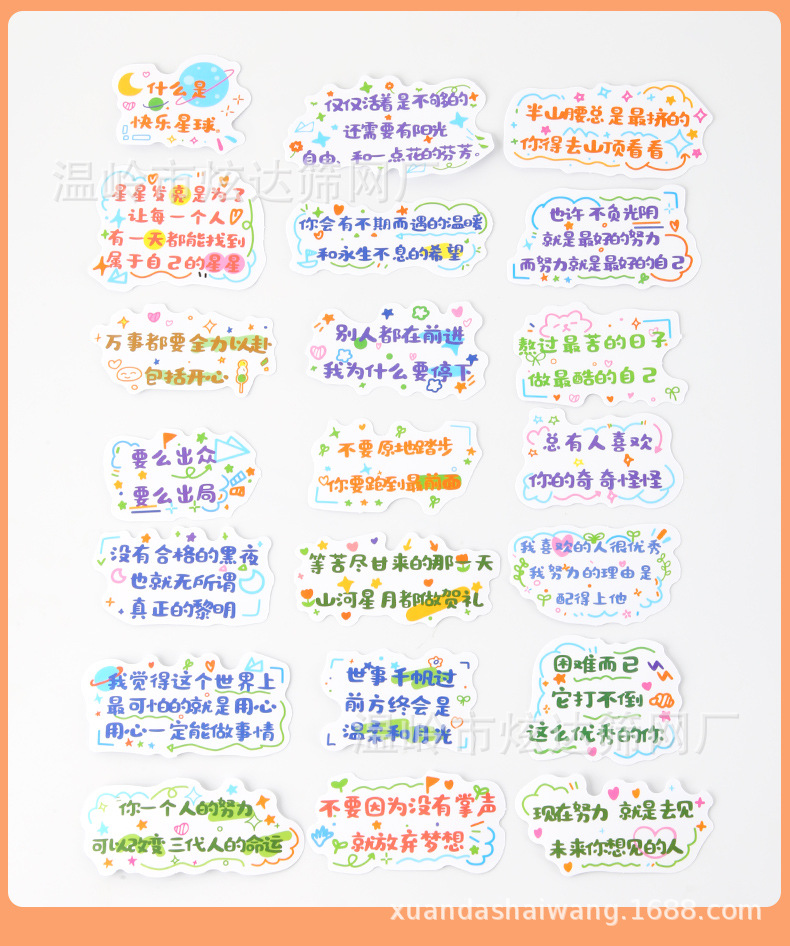 什么是
快乐星球
仅仅活着是不够的
还需要有阳光
自由、和一点花的芬芳。
半山腰总是最挤的
你得去山顶看看
温岭市炫达筛网厂
星星发亮是为了
让每一个人
有一天都能找到
属于自己的星星
你会有不期而遇的温暖
和永生不息的希望
也许 不负光阴
就是最好的努力
而努力就是最好的自己
万事都要全力以赴
包括开心
别人都在前进
我为什么要停下
熬过最苦的日子
做最酷的自己
要么出众
要么出局
不要原地踏步
你要跑到最前面
总有人喜欢
你的奇奇怪怪
没有合格的黑夜
也就无所谓
真正的黎明
等苦尽甘来的那一天
山河星月都做贺礼
我喜欢的人很优秀
我努力的理由是
配得上他
我觉得这个世界上
最可怕的就是用心
用心一定能做事情
世事千帆过
前方终会是
温柔和月光
困难而已
它打不倒
这么优秀的你
温岭市炫达筛网厂
你一个人的努力
可以改变三代人的命运
不要因为没有掌声
就放弃梦想
现在努力 就是去见
未来你想见的人
xuandashaiwang.1688.com